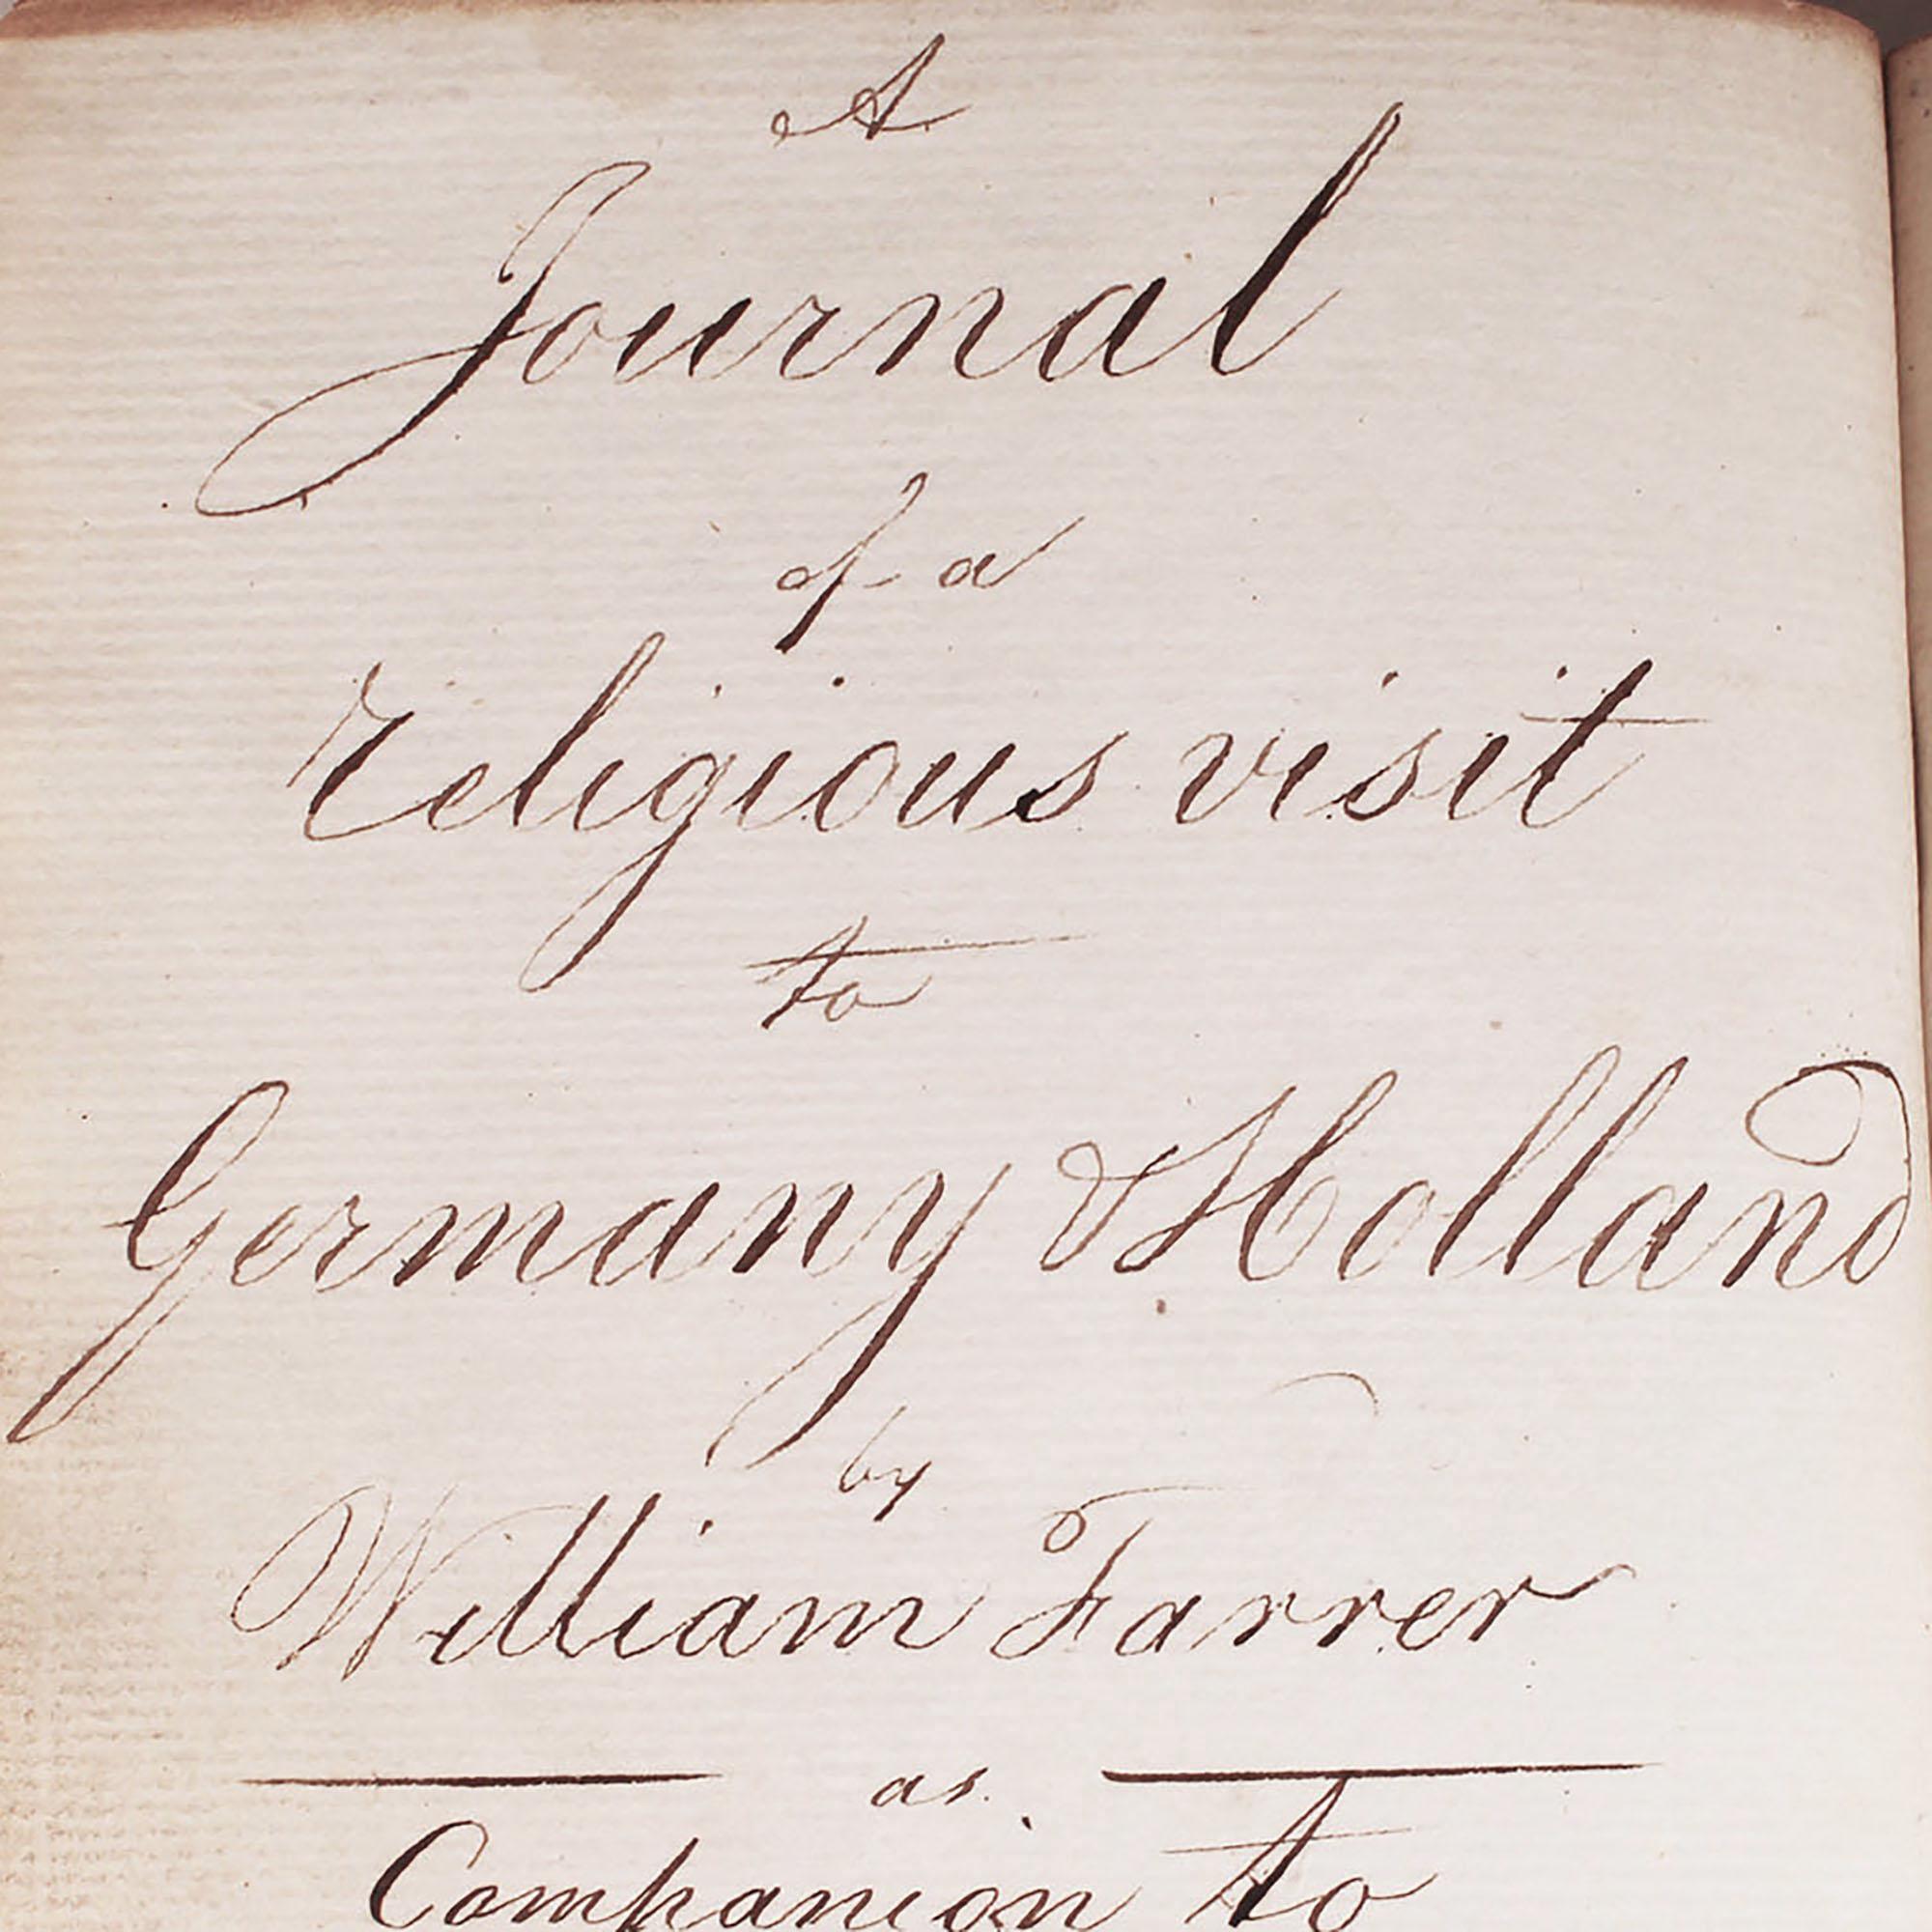 A
Journal
of a
religious visit
to
Germany & Holland
by
William Farrer
as
Companion to